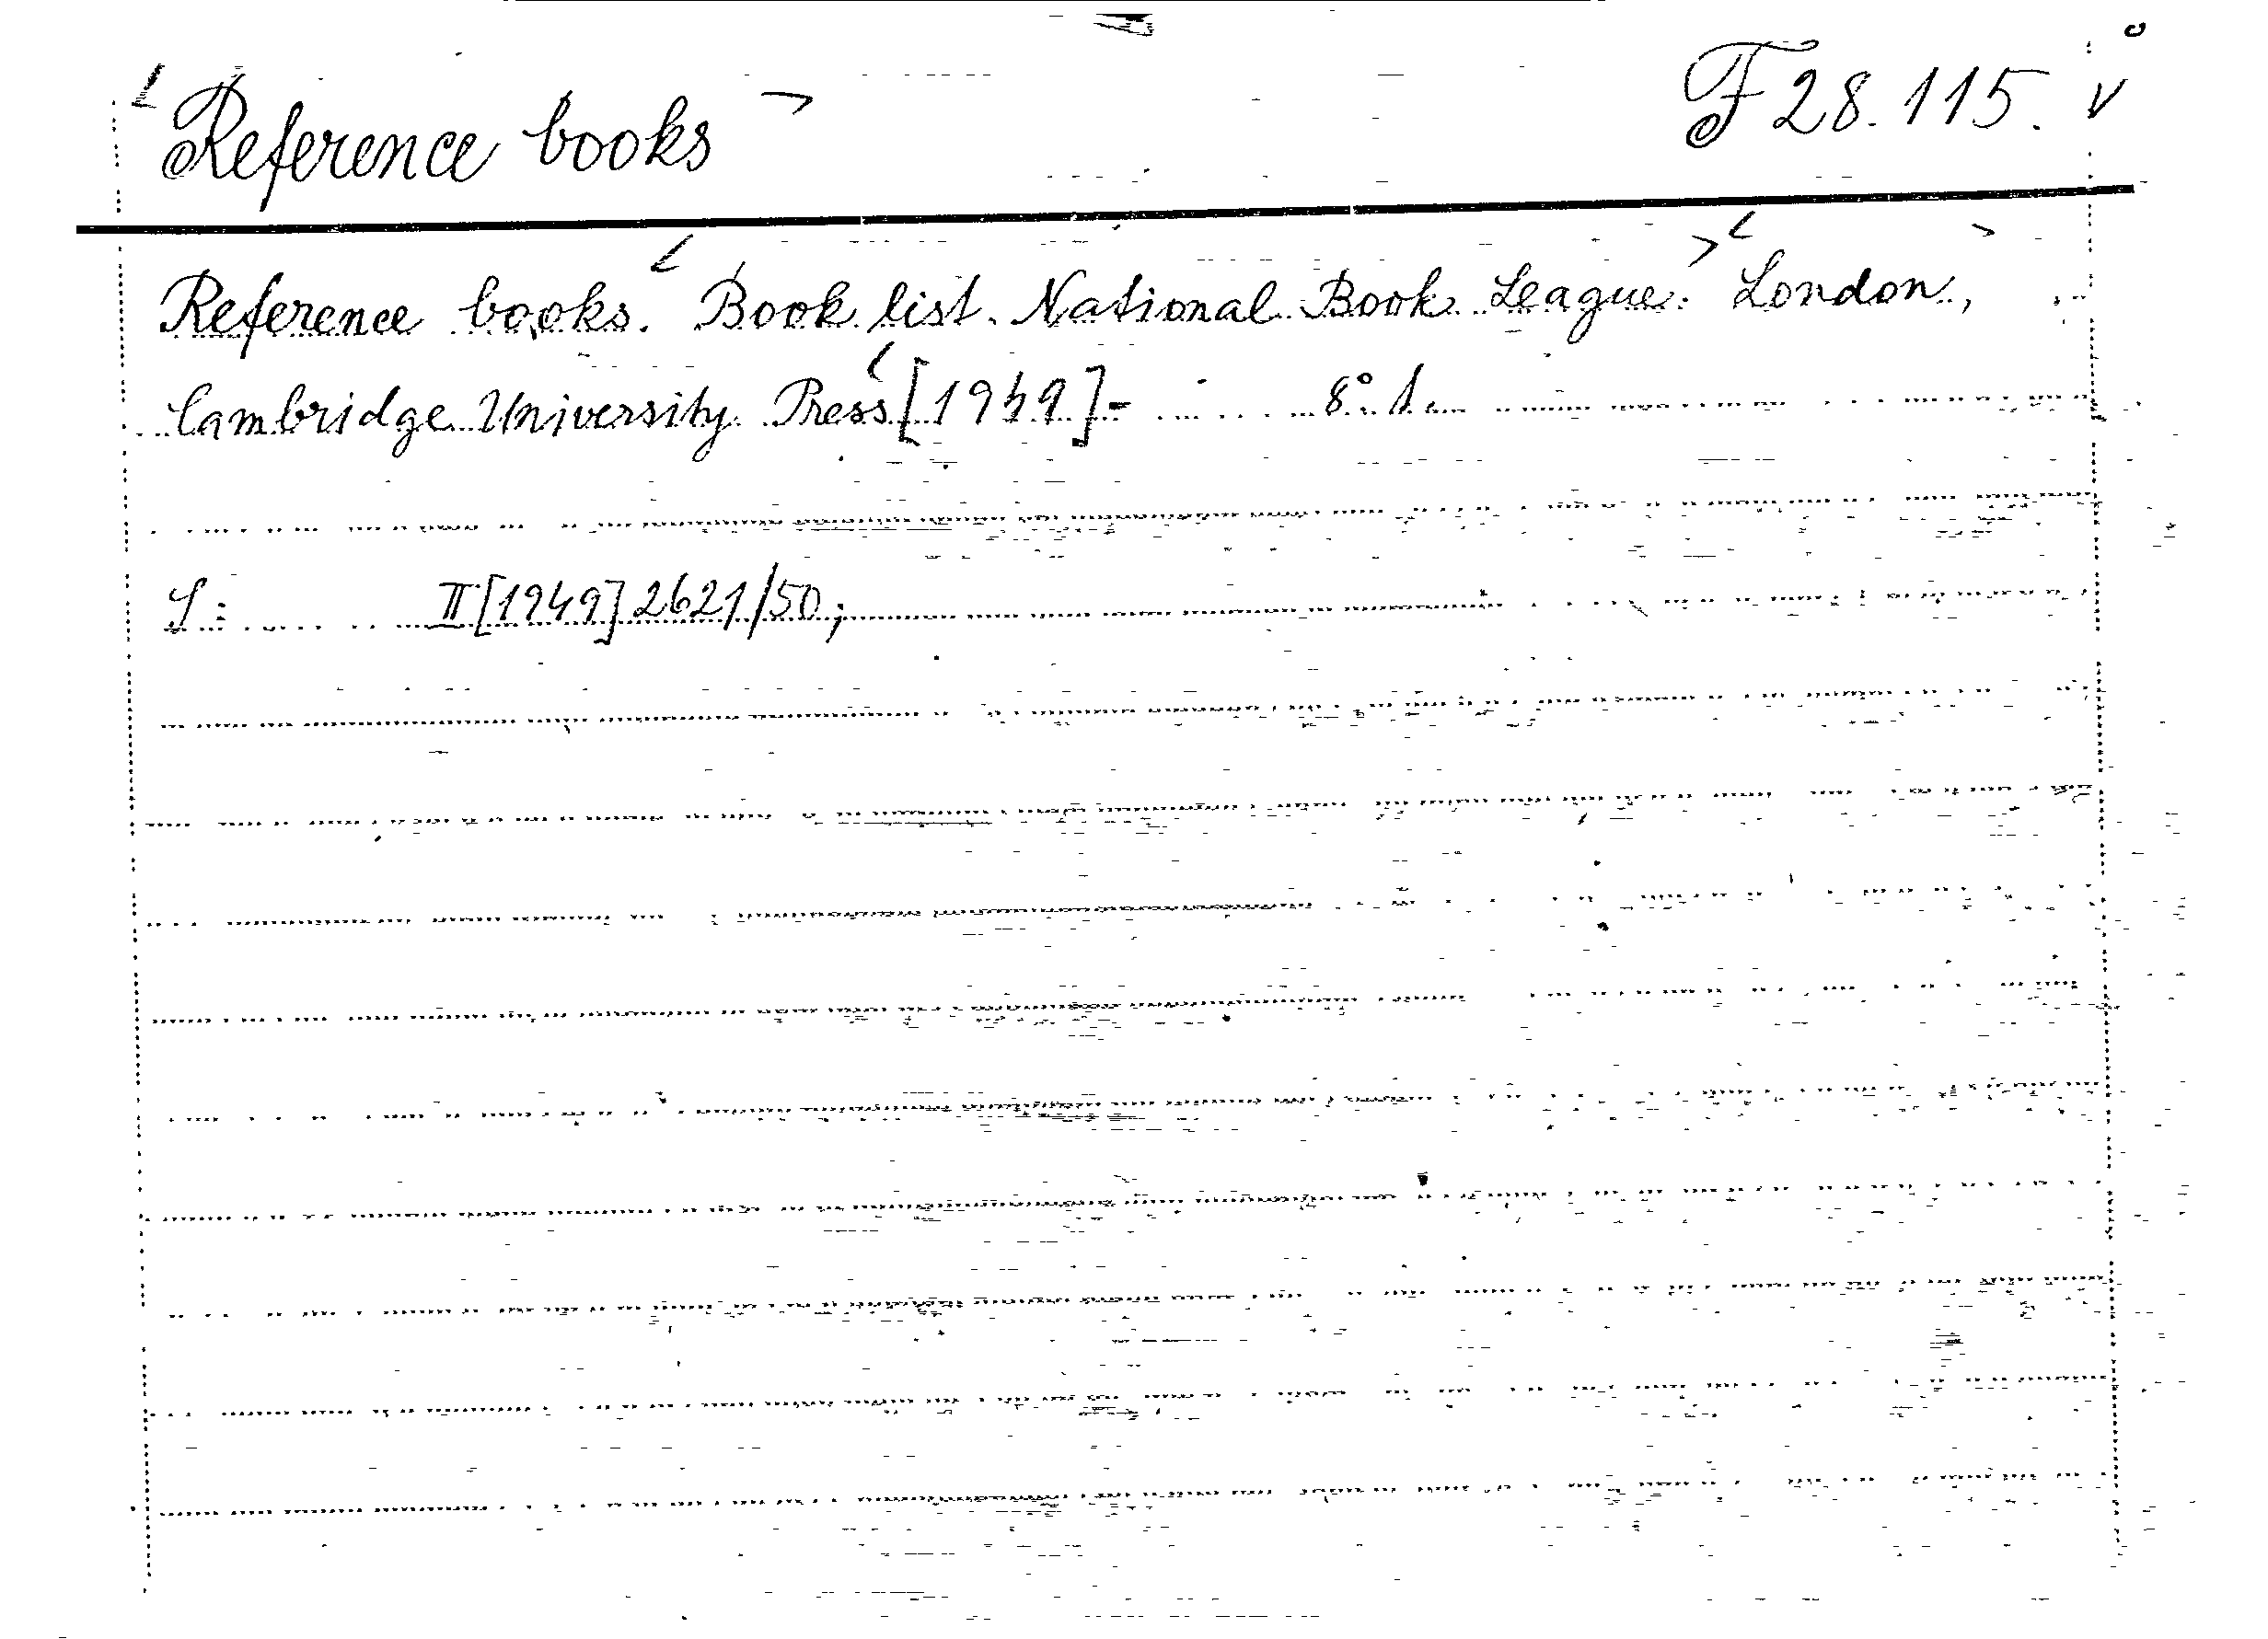 Reference books
F 28.115. v
Reference books. Book list. National Book League. London,
Cambridge University Press [1949]- 8° 1.
S: II [1949] 2621/50;